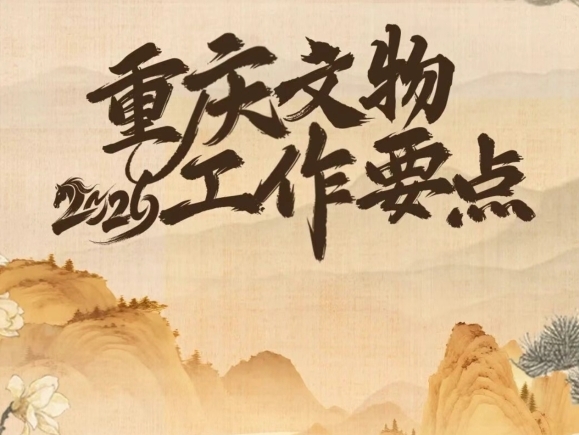 重庆文物
2026工作要点